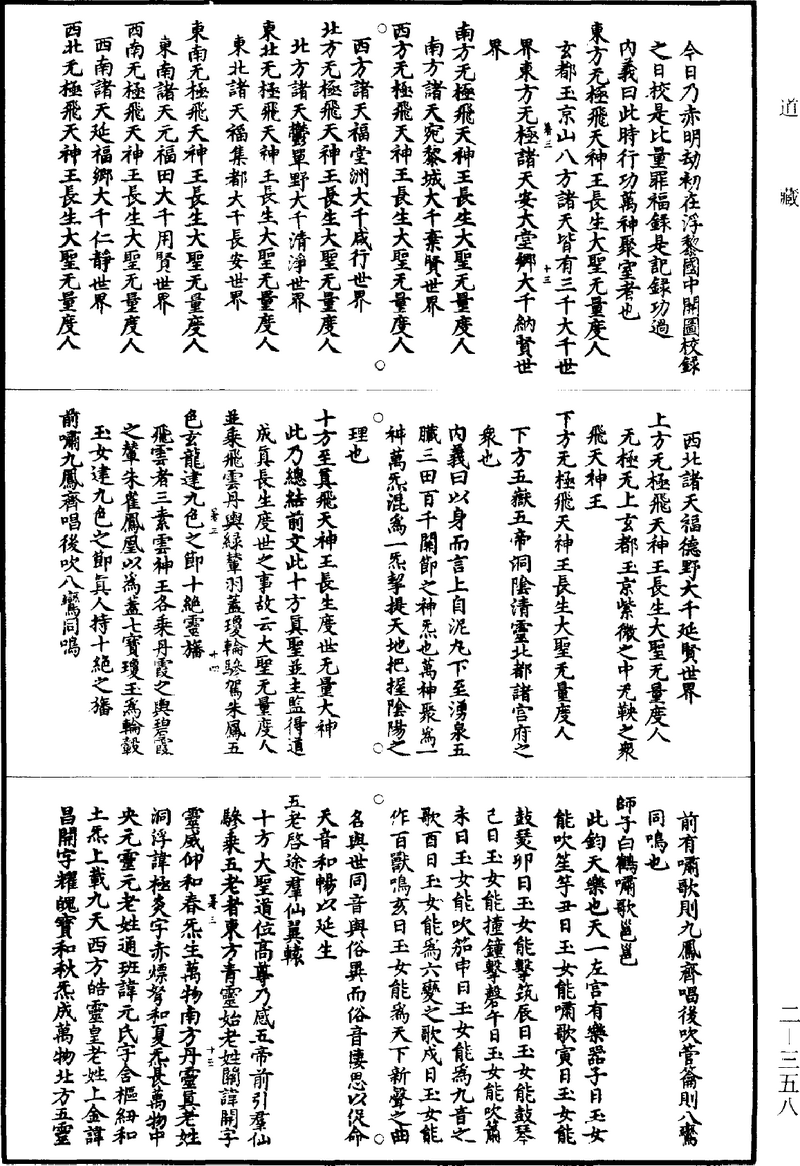 道藏
今日乃赤明劫初在浮黎國中開圖校錄
之日校是比量罪福錄是記錄功過
內義曰此時行功萬神聚室者也
東方无極飛天神王長生大聖无量度人
玄都玉京山八方諸天皆有三千大千世
卷三
十三
界東方无極諸天安大堂鄉大千納賢世
界
南方无極飛天神王長生大聖无量度人
南方諸天宛黎城大千棄賢世界
西方无極飛天神王長生大聖无量度人
西方諸天福堂洲大千咸行世界
北方无極飛天神王長生大聖无量度人
北方諸天鬱單野大千清淨世界
東北无極飛天神王長生大聖无量度人
東北諸天福集都大千長安世界
東南无極飛天神王長生大聖无量度人
東南諸天元福田大千用賢世界
西南无極飛天神王長生大聖无量度人
西南諸天延福鄉大千仁靜世界
西北无極飛天神王長生大聖无量度人
西北諸天福德野大千延賢世界
上方无極飛天神王長生大聖无量度人
无極无上玄都玉京紫微之中无鞅之衆
飛天神王
下方无極飛天神王長生大聖无量度人
下方五嶽五帝洞陰清靈北都諸宮府之
衆也
內義曰以身而言上自泥丸下至湧泉五
臟三田百千關節之神炁也萬神聚爲一
神萬炁混爲一炁挈提天地把握陰陽之
理也
十方至眞飛天神王長生度世无量大神
此乃總結前文此十方眞聖並主監得道
成眞長生度世之事故云大聖无量度人
並乘飛雲丹輿綠輦羽蓋瓊輪驂駕朱鳳五
卷三
十四
色玄龍建九色之節十絕靈旛
飛雲者三素雲神王各乘丹霞之輿碧霞
之輦朱雀鳳凰以爲蓋七寶瓊玉爲輪轂
玉女建九色之節眞人持十絕之旛
前嘯九鳳齊唱後吹八鸞同鳴
前有嘯歌則九鳳齊唱後吹管籥則八鸞
同鳴也
師子白鶴嘯歌邕邕
此鈞天樂也天一左宮有樂器子日玉女
能吹笙竽丑日玉女能嘯歌寅日玉女能
鼓瑟卯日玉女能擊筑辰日玉女能鼓琴
己日玉女能撞鐘擊磬午日玉女能吹簫
未日玉女能吹笳申日玉女能爲九音之
歌酉日玉女能爲六變之歌戌日玉女能
作百獸鳴亥日玉女能爲天下新聲之曲
名與世同音與俗異而俗音悽思以促命
天音和暢以延生
五老啓途羣仙翼轅
十方大聖道位高尊乃感五帝前引羣仙
驂乘五老者東方青靈始老姓閻諱開字
卷三
十五
靈威仰和春炁生萬物南方丹靈眞老姓
洞浮諱極炎字赤熛弩和夏炁長萬物中
央元靈元老姓通班諱元氏字含樞紐和
土炁上載九天西方皓靈皇老姓上金諱
昌開字耀魄寶和秋炁成萬物北方五靈
二—三五八